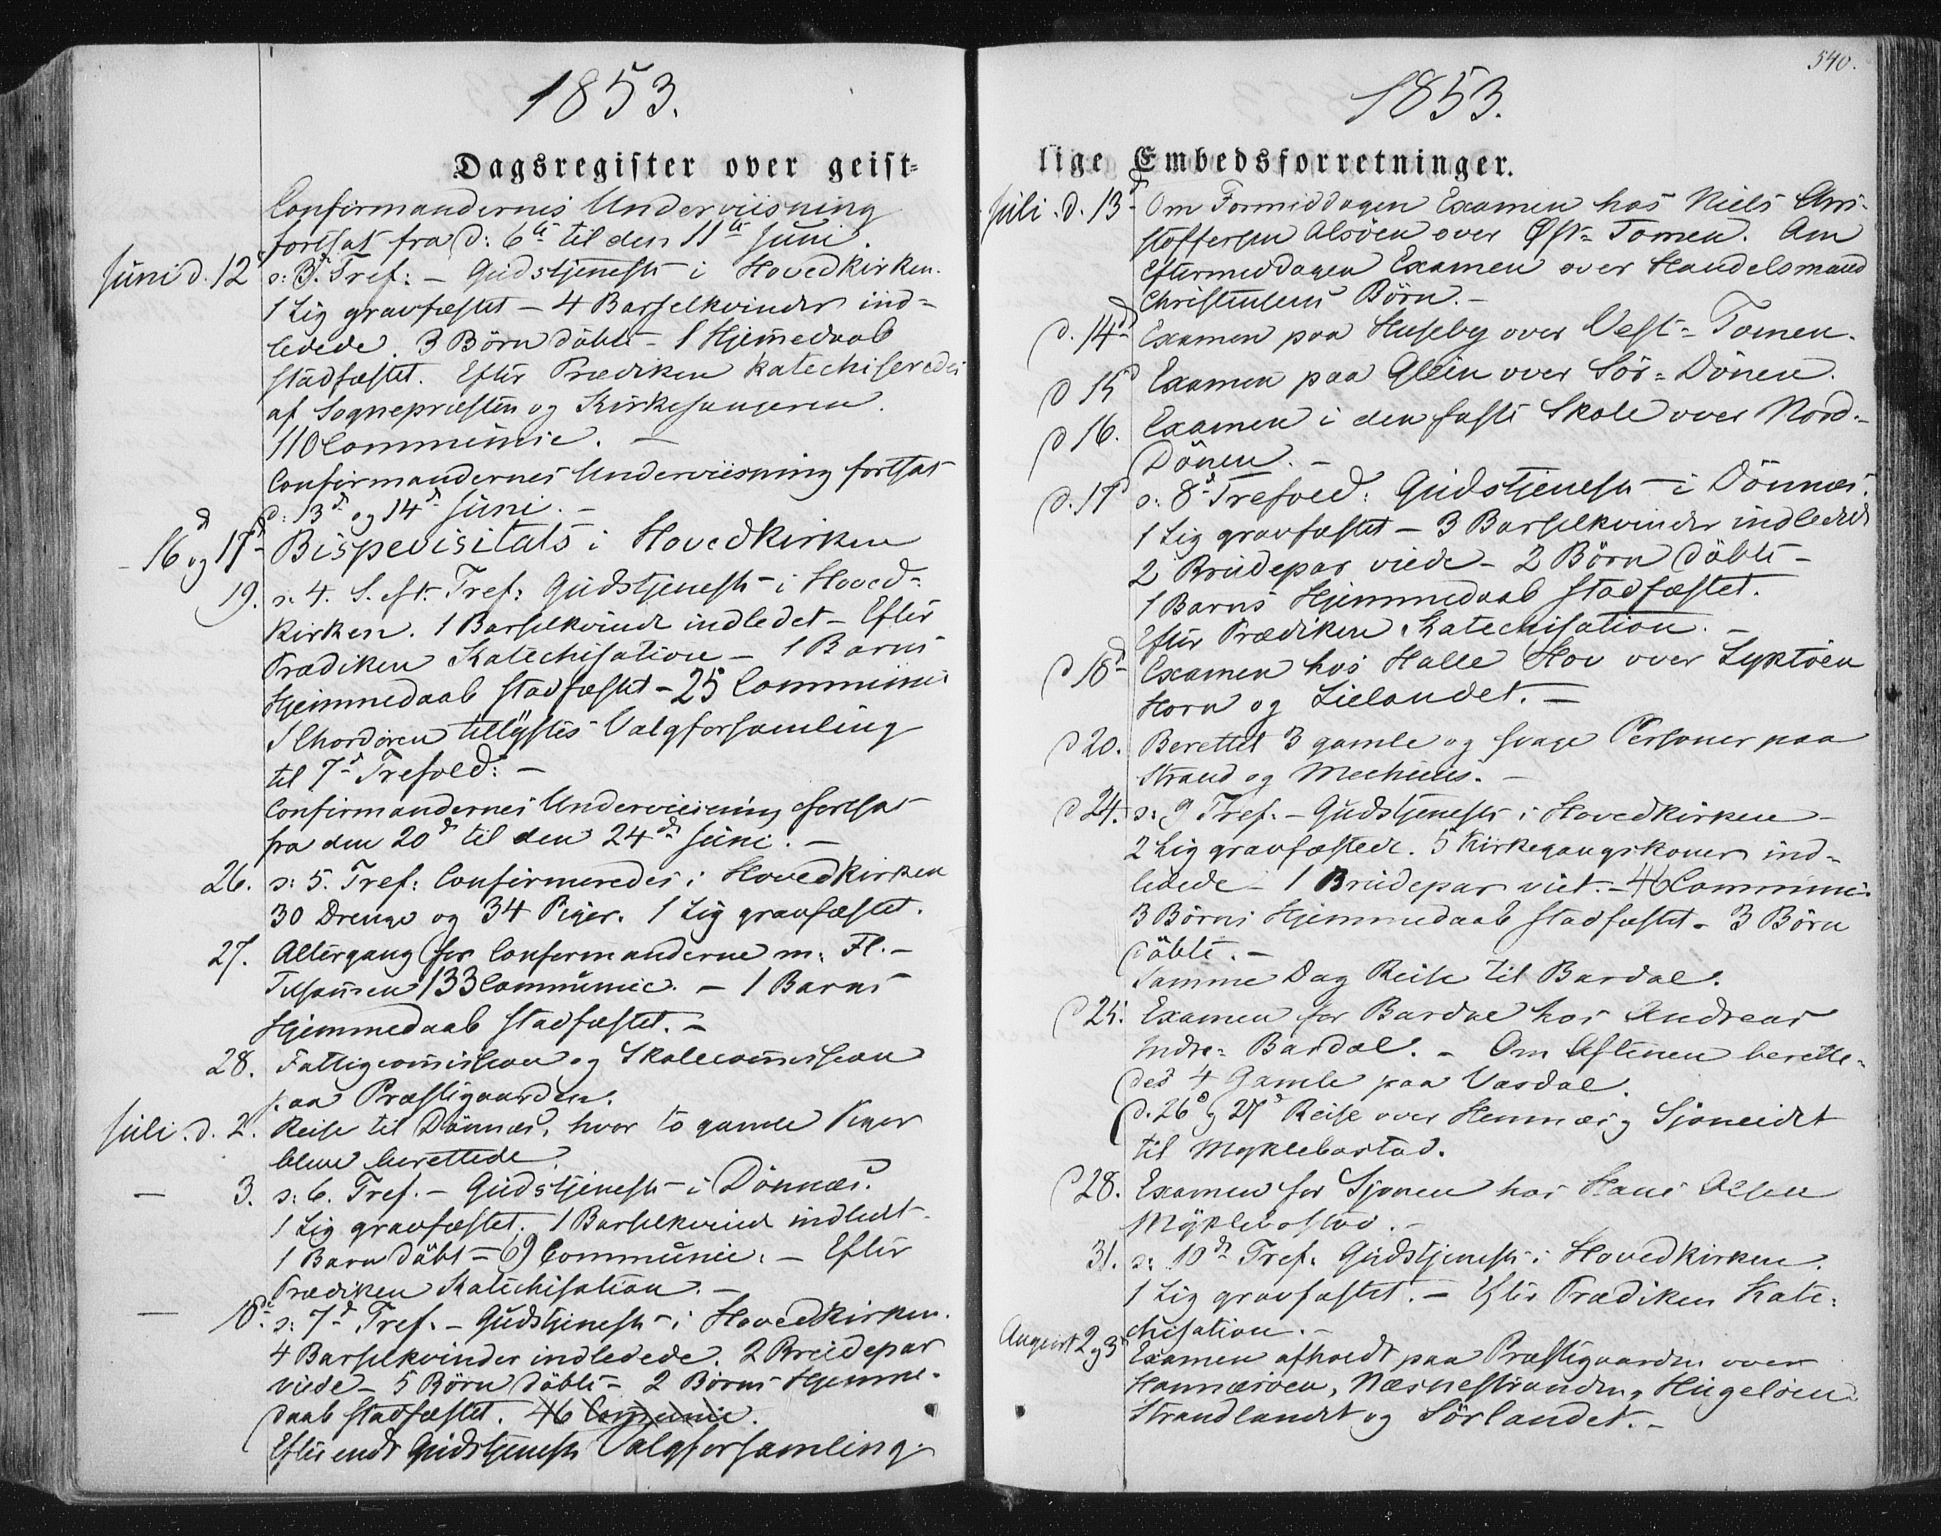 1853.
Dagsregister over geist-
Confirmandernes Underviisning
fortsat fra d: 6te til den 11te Juni.
Juni d. 12te s: 3d. Tref: - Gudstjeneste i Hovedkirken.
1 Lig gravfæstet - 4 Barselkvinder ind-
ledede. 3 Børn døbte - 1 Hjemmedaab
stadfæstet. Efter Prædiken katechiseredes
af Sognepræsten og Kirkesangeren.
110 Communic. -
Confirmandernes Underviisning fortsat
d: 13d og 14d Juni. -
- 16d og 17d Bispevisitats i Hovedkirken
19. s. 4. S. eft. Tref: Gudstjeneste i Hoved-
kirken. 1 Barselkvinde indledet - Efter
Prædiken Katechisation - 1 Barns
Hjemmedaab stadfæstet - 25 Communic
I Chordøren tillystes Valgforsamling
til 7d Trefold: -
Confirmandernes Underviisning fortsat
fra den 20d til den 24d Juni. -
26. s: 5. Tref: Confirmeredes i Hovedkirken
30 Drenge og 34 Piger. 1 Lig gravfæstet.
27. Altergang for Confirmanderne m: Fl. -
Tilsammen 133 Communic. - 1 Barns
Hjemmedaab stadfæstet. -
28. Fattigcommission og Skolecommission
paa Præstegaarden.
Juli. d. 2. Reise til Dønnæs, hvor to gamle Piger
bleve berettede.
- 3. s: 6. Tref. - Gudstjeneste i Dønnæs.
1 Lig gravfæstet. 1 Barselkvind indledt
1 Barn døbt - 69 Communic. - Efter
Prædiken Katechisation. -
- 10de s: 7d Tref. - Gudstjeneste i Hovedkirken.
4 Barselkvinder indledede. 2 Brudepar
viede - 5 Børn døbte - 2 Børns Hjemme-
daab stadfæstet. 46 Communic.
Efter endt Gudstjeneste Valgforsamling.
540.
1853.
lige Embedsforretninger.
Juli. d. 13d Om Formiddagen Examen hos Niels Chri-
stoffersen Alsøen over Øst-Tomen. Om
Eftermiddagen Examen over Handelsmand
Christensens Børn. -
d. 14d Examen paa Huseby over Vest-Tomen.
d 15d Examen paa Glein over Sør-Dønen.
d 16. Examen i den faste Skole over Nord-
Dønen. -
d. 17d s: 8d Trefold: Gudstjeneste i Dønnæs.
1 Lig gravfæstet - 3 Barselkvinder indledede
2 Brudepar viede - 2 Børn døbte -
1 Barns Hjemmedaab stadfæstet.
Efter Prædiken Katechisation. -
d 18d Examen hos Halle Hov over Lyktøen
Horn og Lielandet. -
d 20. Berettet 3 gamle og svage Personer paa
Strand og -
d 24. s: 9 Tref. - Gudstjeneste i Hovedkirken -
2 Lig gravfæstede. 5 Kirkegangskoner ind-
ledede - 1 Brudepar viet. - 46 Communic.
3 Børns Hjemmedaab stadfæstet - 3 Børn
døbte. -
Samme Dag Reise til Bardal.
d 25. Examen for Bardal hos Andreas
Indre-Bardal. - Om Aftenen berette-
des 4 Gamle paa Vardal.
d. 26d og 27d Reise over Hemnæs og Sjoneidet
til Myklebostad.
d 28. Examen for Sjonen hos Hans Olsen
Myklebostad. -
31. s: 10de Tref: Gudstjeneste i Hovedkirken.
1 Lig gravfæstet. - Efter Prædiken Kate-
chisation. -
August 2 og 3d Examen afholdt paa Præstegaarden over
Hannæsøen, Næsnestranden, Hugeløen
Strandlandet og Sørlandet. -